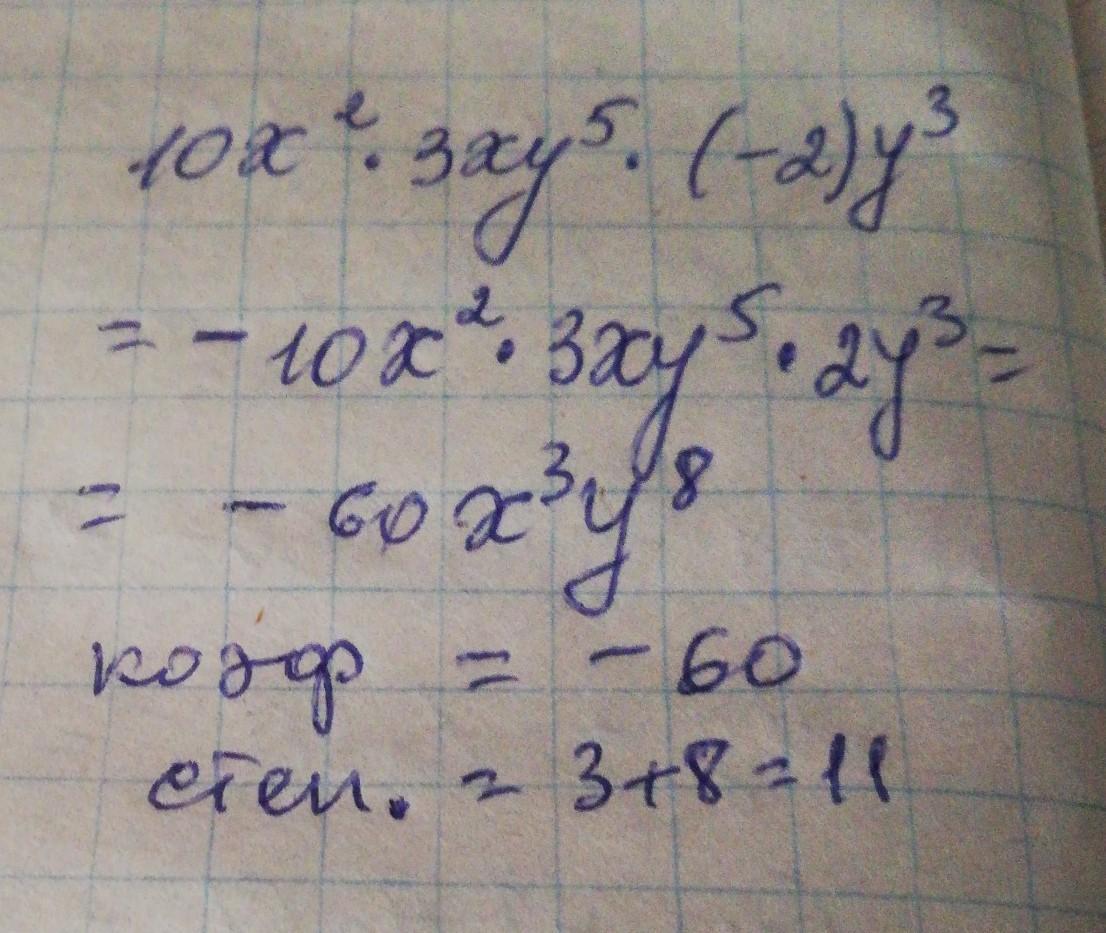 10x² · 3xy⁵ · (-2)y³
= - 10x² · 3xy⁵ · 2y³ =
= - 60x³y⁸
коэф = - 60
степ. = 3+8=11